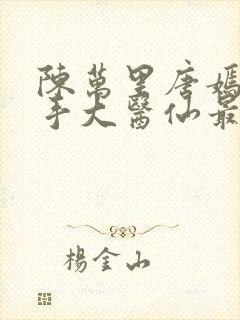 陳萬里唐嫣
手大醫仙最
楊金山